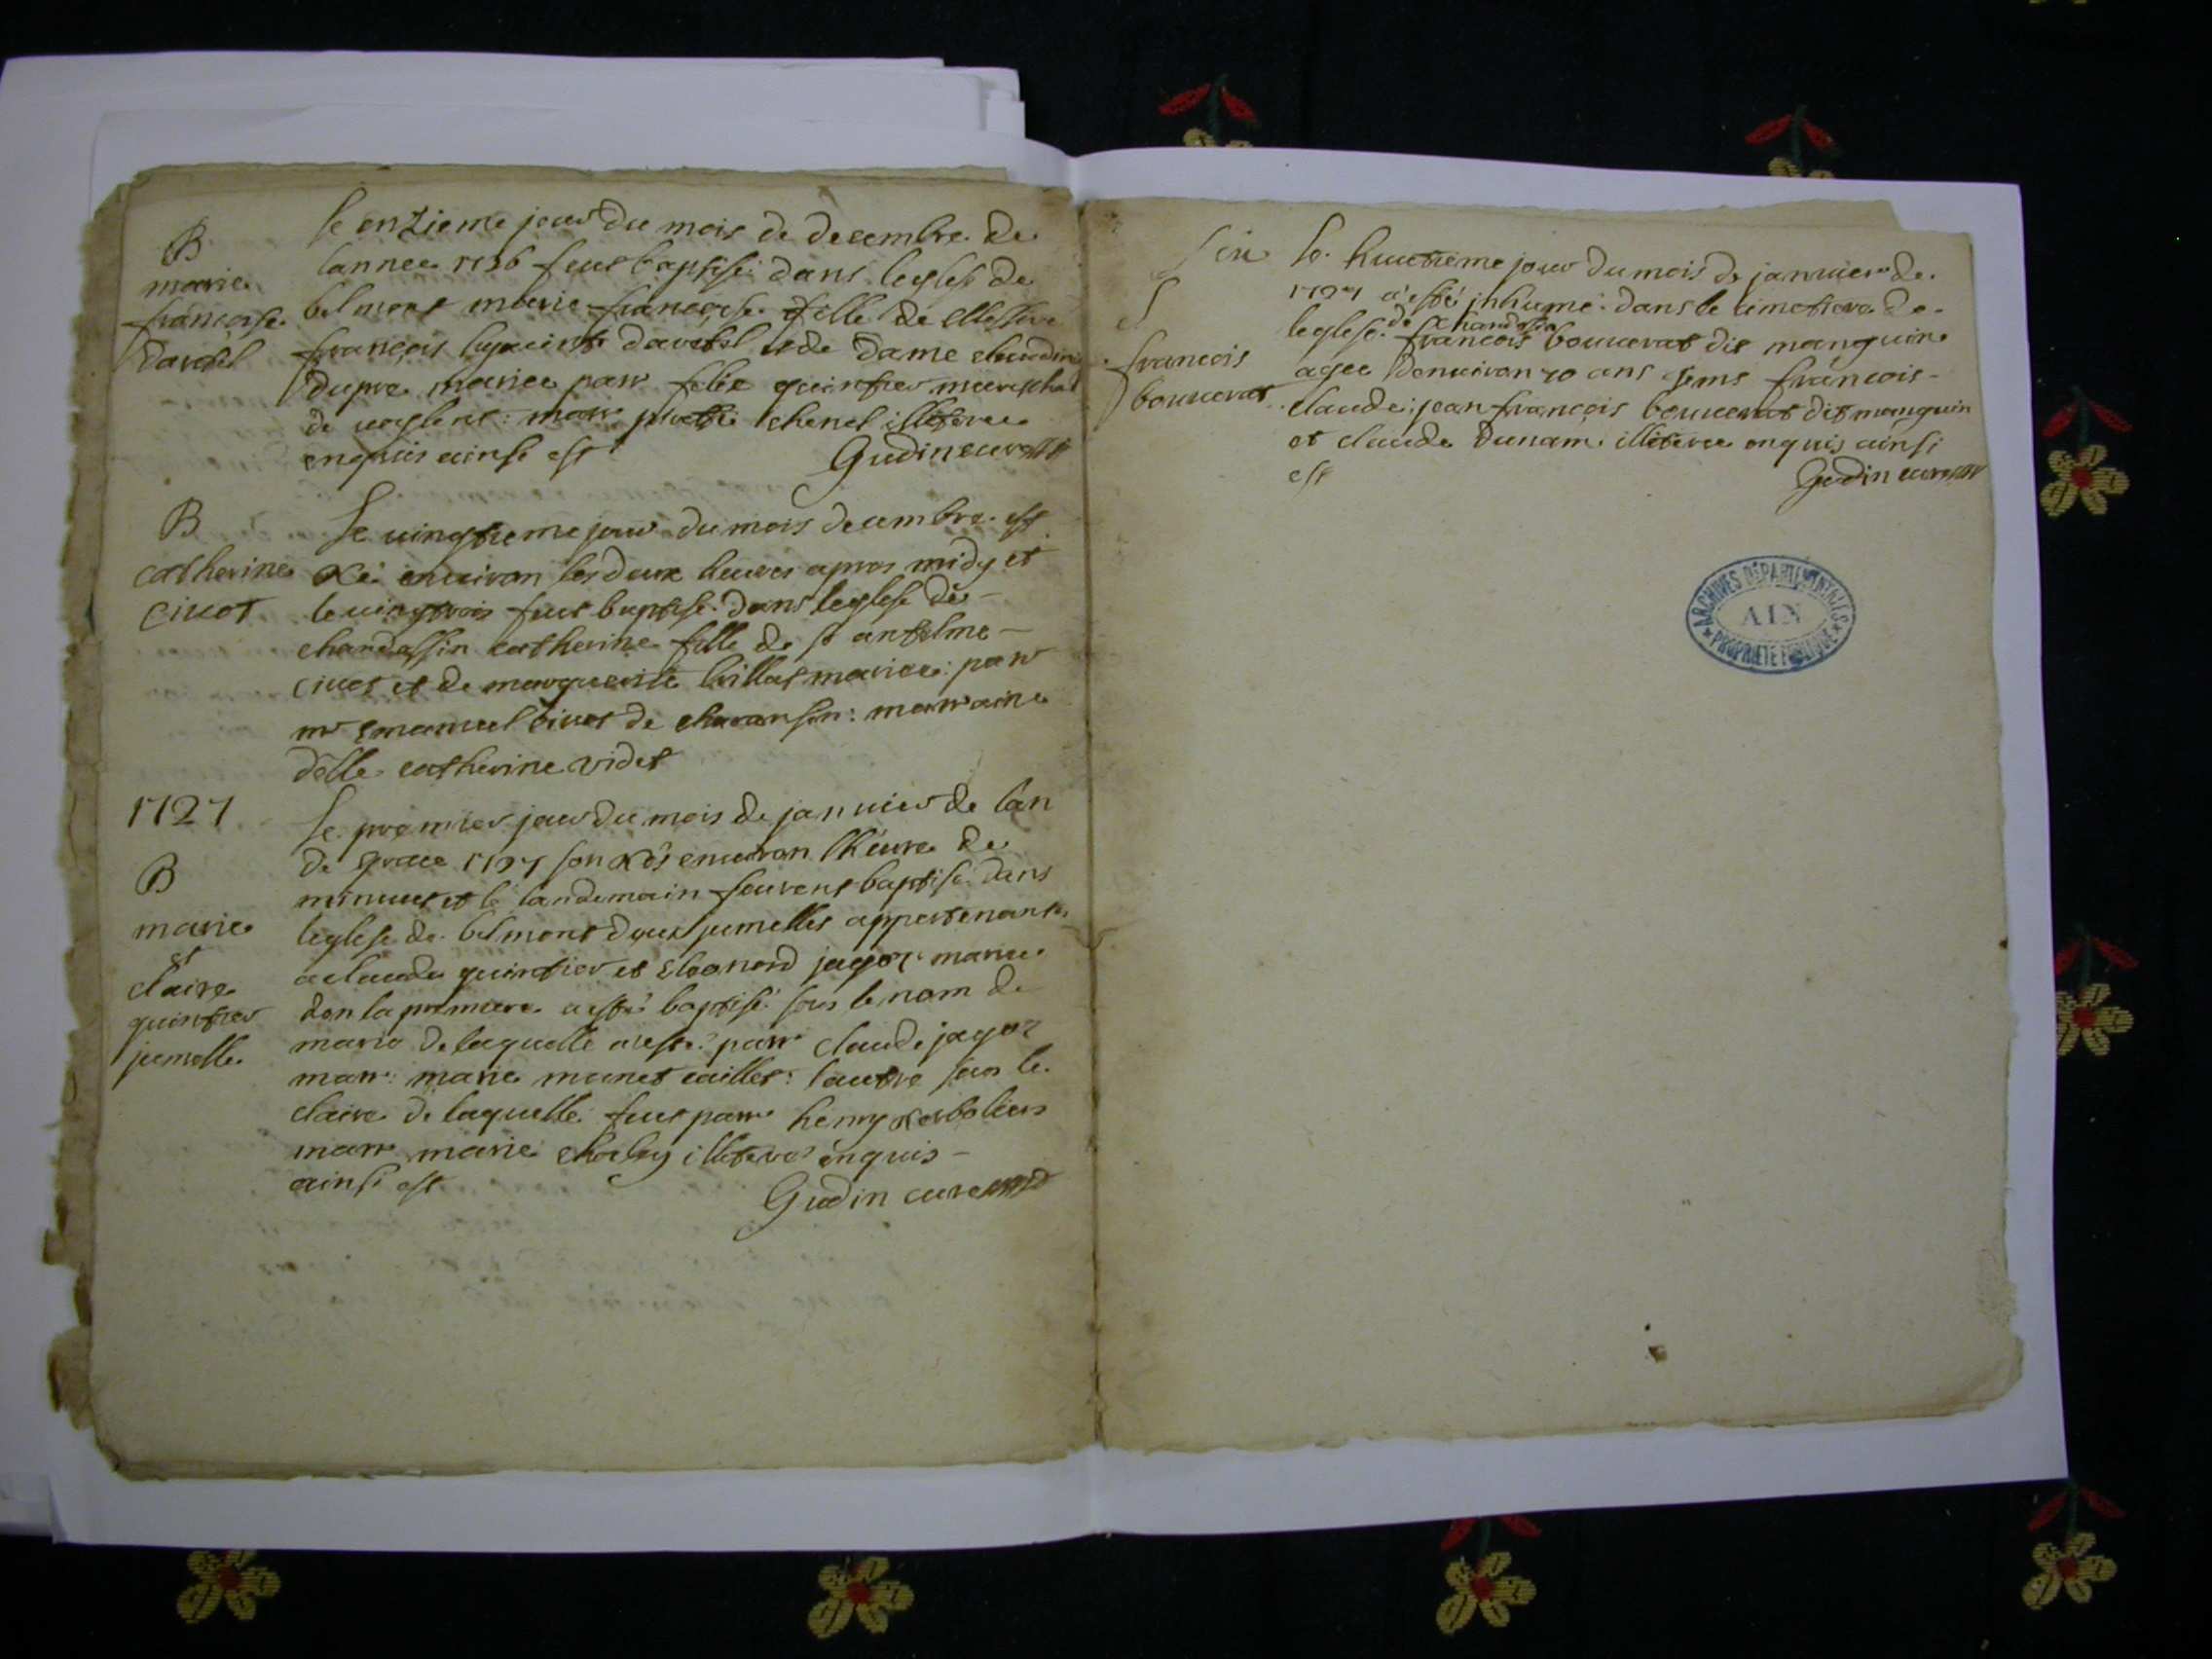 B
marie
francoise
Davetel
le onzieme jour du mois de decembre de
lannee 1726 feut baptisé dans leglese de
belmont marie francoise fille de Messire
francois hyacinte davetel et de dame claudine
dupre mariee parr felix quintier mareschal
de marr chenel illeteree
enquis ainsi est Gudin curé
B
catherine
civot
le vingtieme jour du mois decembre est
né environ les deux heures apres midy et
le vingtrois feut baptisé dans leglese de
chandossin catherine fille de sr antelme
civot et de marguerite brillat mariee: parr
mr Emanuel civot de charansin: marraine
delle catherine videt
1727
B
marie
et
claire
quintier
jumelle
le premier jour du mois de janvier de lan
de grace 1727 son nés environ lheure de
minuict et le landemain feurent baptisé dans
leglese de belmont deux jumelles appertenantes
a claude quintier et Eleonord jagoz marie
don la premiere a esté baptisé sous le nom de
marie de laquelle a esté parr claude jagoz
marr: marie monet caillet: lautre sous le
claire de laquelle feut parr henry
marr marie charley illetere enquis
ainsi est
Gudin curé
S
francois
bouverat
le huictieme jour du mois de janvier de
1727 a esté inhumé dans le cimetiere de
leglese de chandossin francois bouverat dit manguin
agee denviron 70 ans tems francois
claude: jean francois bouverat dit manguin
et claude dunam illiteree enquis ainsi
est Gudin curé
ARCHIVES DÉPARTEMENTALES
AIN
PROPRIÉTÉ PUBLIQUE